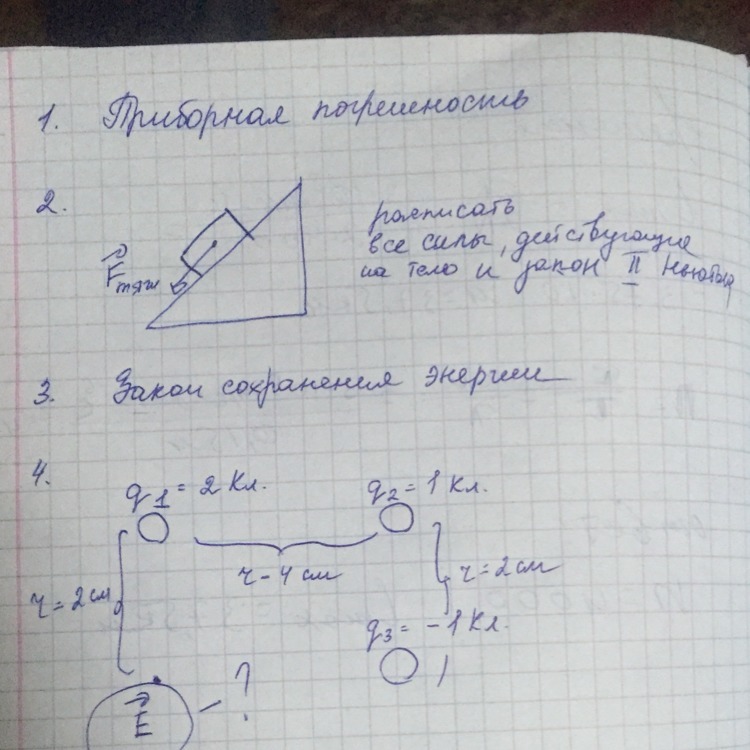 1. Приборная погрешность
2.
расписать
все силы, действующие
на тело и закон II Ньютона
F тяж
3. Закон сохранения энергии
4.
q1 = 2 Кл.
q2 = 1 Кл.
r - 4 см
r = 2 см
r = 2 см
q3 = - 1 Кл.
E - ?